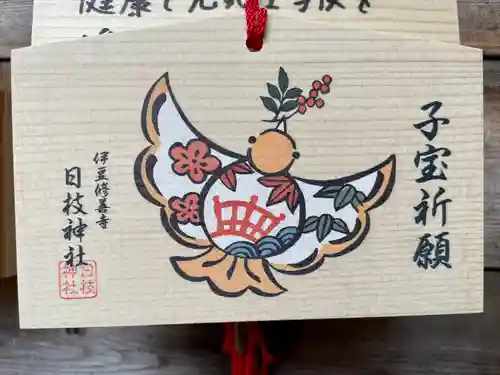 健康で元気な子供を
子宝祈願
伊豆修善寺
日枝神社
日枝
神社